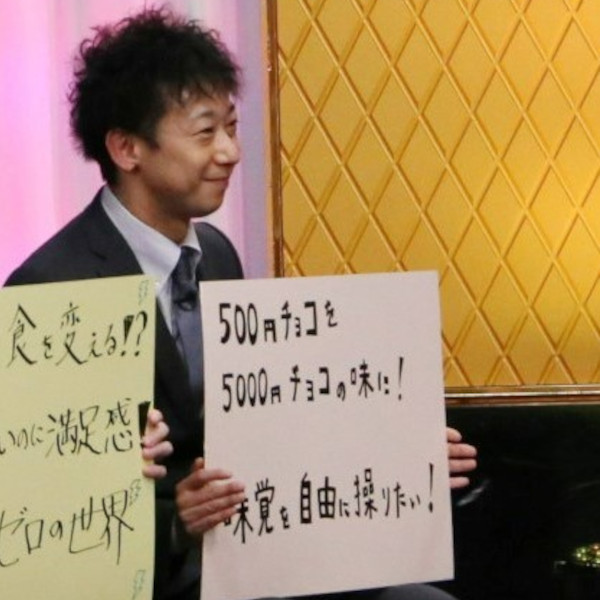 食を変える!?
いのに満足感!
ゼロの世界
500円チョコを
5000円チョコの味に!
味覚を自由に操りたい!